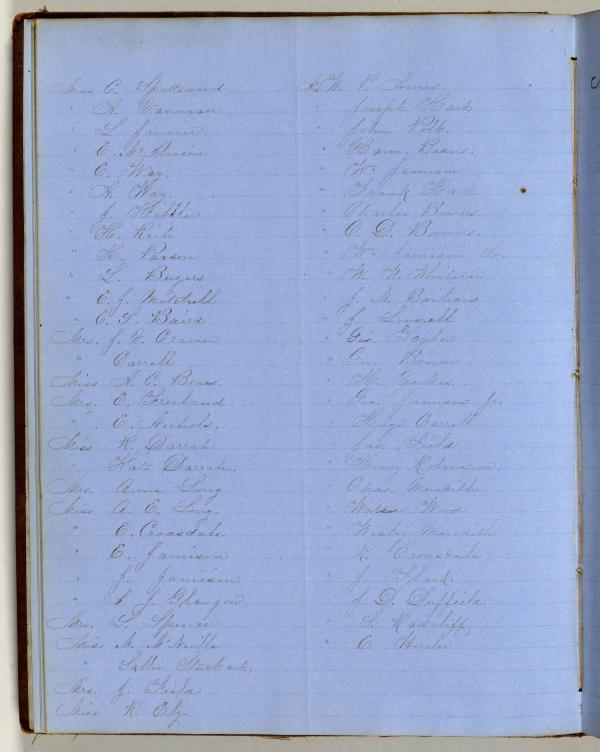 Miss C. Spottswood
" A. Vannxan
" L. Janvier
" E. Mc
" E. Way.
" A. Way.
" J. Hibbler
" H. Rich
" K. Paxson
" L. Buyers
" E. J. Mitchell
" E. S. Baird
Mrs. J. E. Craven
" Carrell
Miss A. C. Beans
Mrs. E. Freeland
" E. Nichols.
Miss R. Darrah
" Kate Darrah.
Mrs. Anna Long
Miss A. E. Long.
" E. Croasdale
" E. Jamison
" J. Jamison
" S. J. Glasgow
Mrs. L. Spencer
Miss M. McNeille
" Sallie Stuckart
Mrs. J. Field
Miss R. Ely.
W. P. Ames
" Joseph Hart
" John Polk.
" Harm. Beans.
" Wm Jamison
" Frank Hart
" Charles Bowers
" C. D. Bowers.
" Wm Jamison Sr.
" W. W.
" J. M. Boileau
" J. Loverell
" Geo. Taylor
" Geo. Bowers
" H. Yerkes
" Geo. Jamison Jr.
" Hugh Carrell
" Jas. Field
" Henry Robinson.
" Chas. Meredith
" Watson Wood
" Wesley Meredith
" R. Croasdale
" J. Flack
" J. D. Duffield
" S. Radcliff,
" C. Heisler